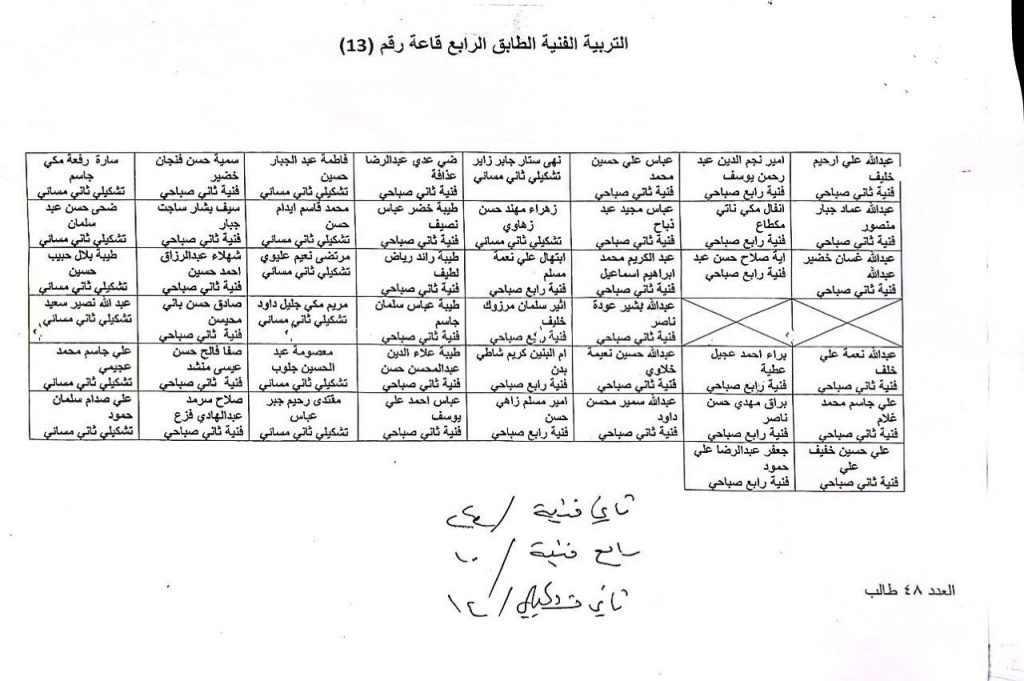 التربية الفنية الطابق الرابع قاعة رقم (13)
عبدالله علي ارحيم خليف فنية ثاني صباحي
امير نجم الدين عبد رحمن يوسف فنية رابع صباحي
عباس علي حسين محمد فنية ثاني صباحي
نهى ستار جابر زاير تشكيلي ثاني مسائي
ضي عدي عبدالرضا عذافة فنية ثاني صباحي
فاطمة عبد الجبار حسين تشكيلي ثاني مسائي
سمية حسن فنجان خضير فنية ثاني صباحي
سارة رفعة مكي جاسم تشكيلي ثاني مسائي
عبدالله عماد جبار منصور فنية ثاني صباحي
انفال مكي ناتي مكطاع فنية رابع صباحي
عباس مجيد عبد ذباح فنية ثاني صباحي
زهراء مهند حسن زهاوي تشكيلي ثاني مسائي
طيبة خضر عباس نصيف فنية ثاني صباحي
محمد قاسم ايدام حسن تشكيلي ثاني مسائي
سيف بشار ساجت جبار فنية ثاني صباحي
ضحى حسن عبد سلمان تشكيلي ثاني مسائي
عبدالله غسان خضير عبدالله فنية ثاني صباحي
اية صلاح حسن عبد فنية رابع صباحي
عبد الكريم محمد ابراهيم اسماعيل فنية ثاني صباحي
ابتهال علي نعمة مسلم فنية رابع صباحي
طيبة رائد رياض لطيف فنية ثاني صباحي
مرتضى نعيم عليوي تشكيلي ثاني مسائي
شهلاء عبدالرزاق احمد حسين فنية ثاني صباحي
طيبة بلال حبيب حسين تشكيلي ثاني مسائي
عبدالله بشير عودة ناصر فنية ثاني صباحي
اثير سلمان مرزوك خليف فنية رابع صباحي
طيبة عباس سلمان جاسم فنية ثاني صباحي
مريم مكي جليل داود تشكيلي ثاني مسائي
صادق حسن باني محيسن فنية ثاني صباحي
عبد الله نصير سعيد تشكيلي ثاني مسائي
عبدالله نعمة علي خلف فنية ثاني صباحي
براء احمد عجيل عطية فنية رابع صباحي
عبدالله حسين نعيمة خلاوي فنية ثاني صباحي
ام البنين كريم شاطي بدن فنية رابع صباحي
طيبة علاء الدين عبدالمحسن حسن فنية ثاني صباحي
معصومة عبد الحسين جلوب تشكيلي ثاني مسائي
صفا فالح حسن عيسى منشد فنية ثاني صباحي
علي جاسم محمد عجيمي تشكيلي ثاني مسائي
علي جاسم محمد غلام فنية ثاني صباحي
براق مهدي حسن ناصر فنية رابع صباحي
عبدالله سمير محسن داود فنية ثاني صباحي
امير مسلم زاهي حسن فنية رابع صباحي
عباس احمد علي يوسف فنية ثاني صباحي
مقتدى رحيم جبر عباس تشكيلي ثاني مسائي
صلاح سرمد عبدالهادي فزع فنية ثاني صباحي
علي صدام سلمان حمود تشكيلي ثاني مسائي
علي حسين خفيف علي فنية ثاني صباحي
جعفر عبدالرضا علي حمود فنية رابع صباحي
ثاني فنية /
رابع فنية / ١٠
ثاني تشكيلي / ١٢
العدد ٤٨ طالب